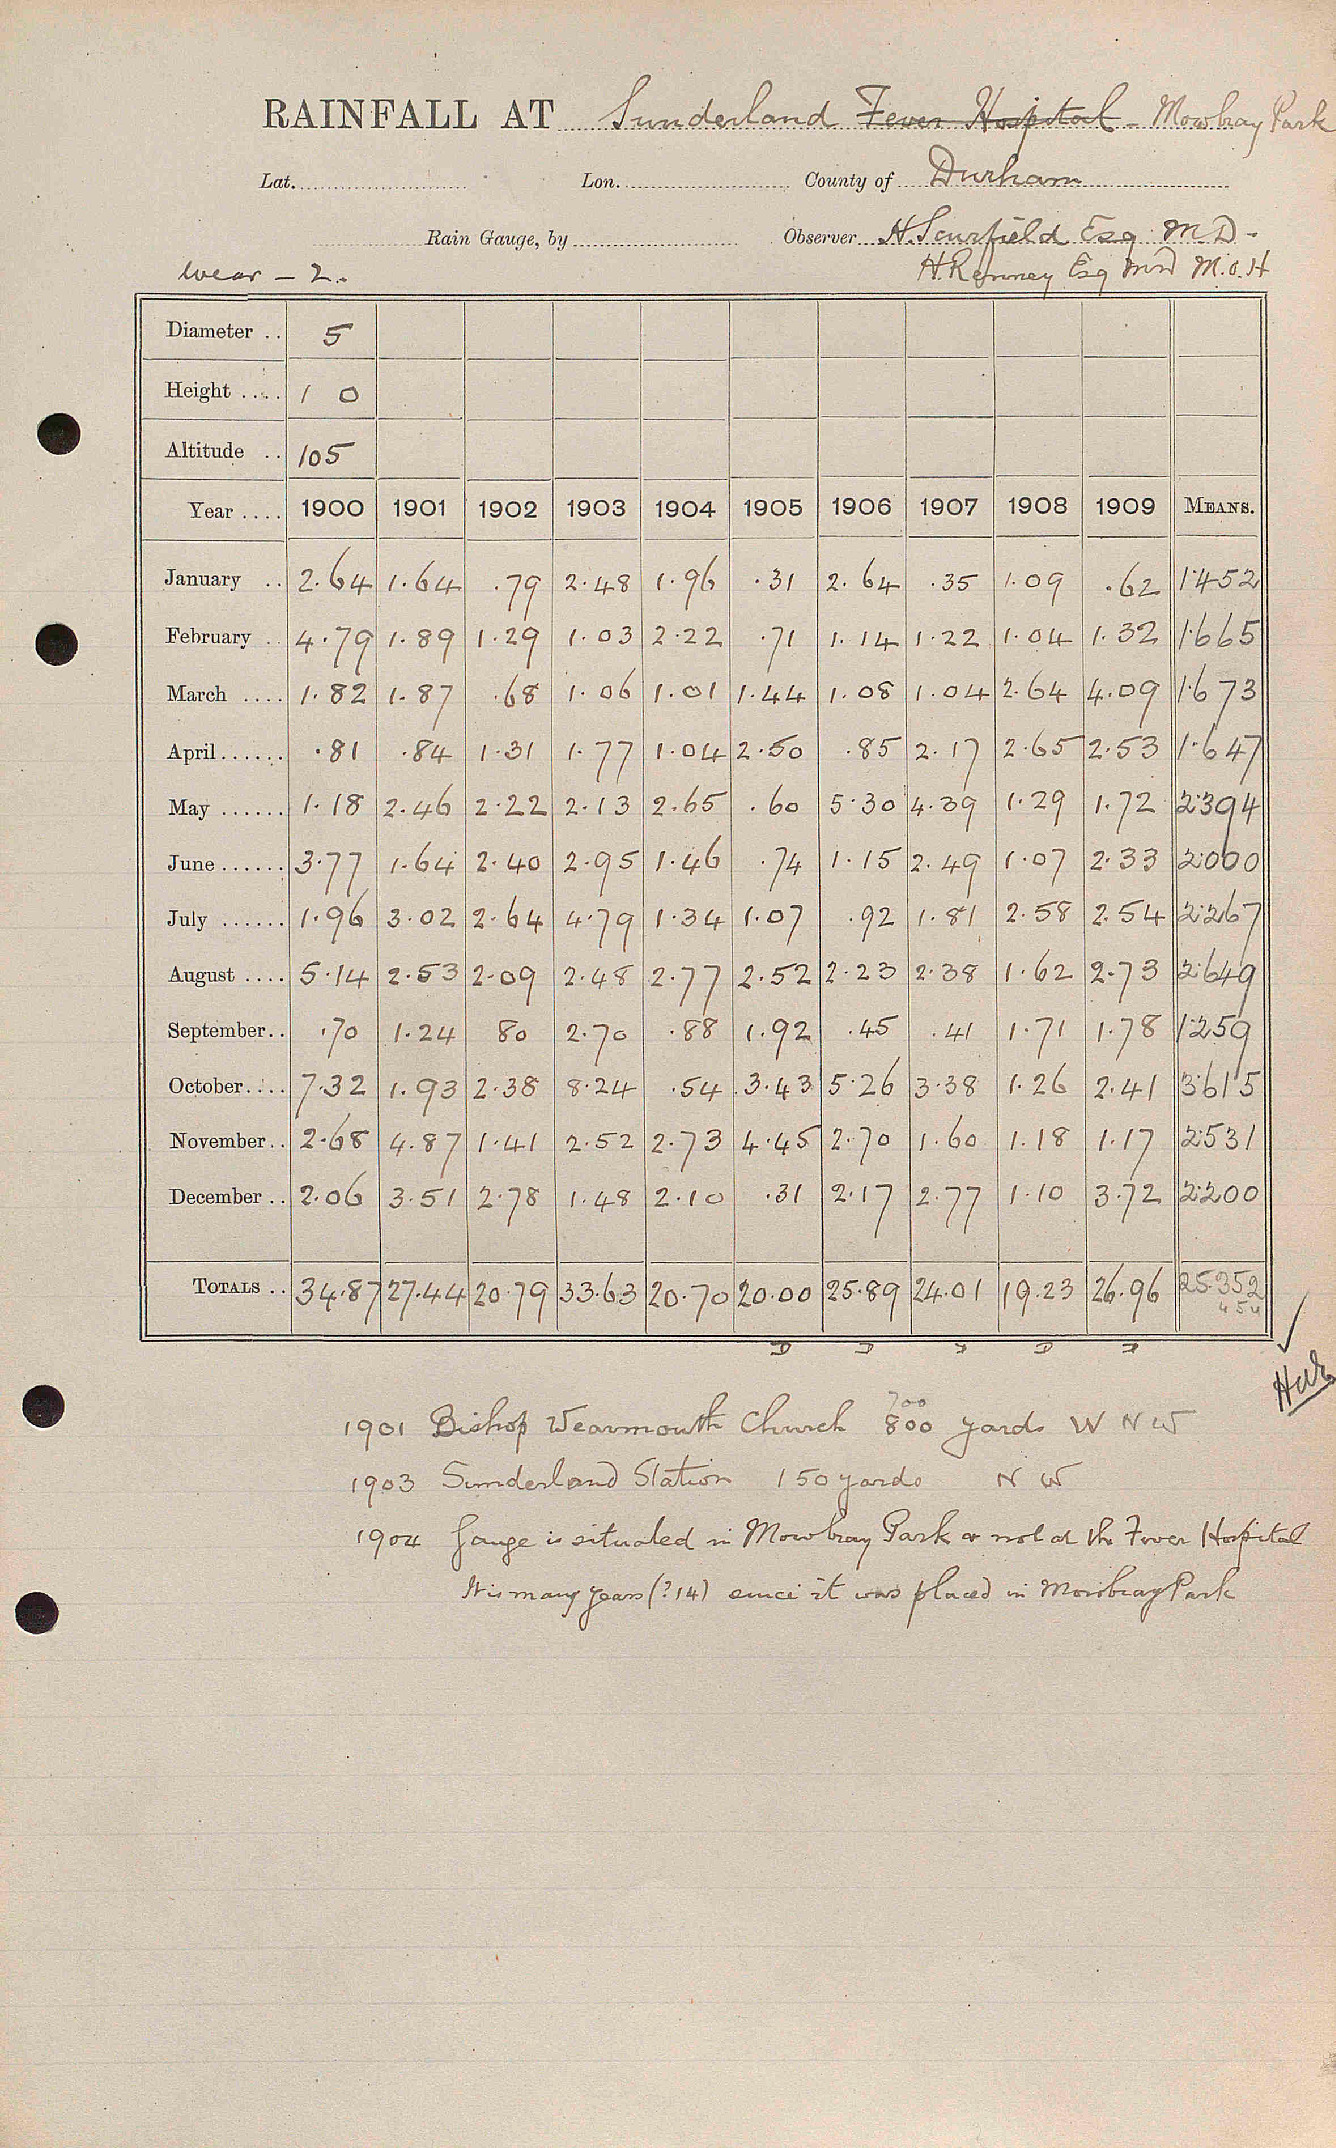 RAINFALL AT Sunderland Fever Hospital - Mowbray Park
Lat. Lon. County of Durham
Rain Gauge, by Observer H. Scurfield Esq. M D -
Wear - 2. H. Renney Esq MD M.O.H
Diameter .. 5
Height .... 1 0
Altitude .. 105
Year .... 1900 1901 1902 1903 1904 1905 1906 1907 1908 1909 MEANS.
January .. 2.64 1.64 .79 2.48 1.96 .31 2.64 .35 1.09 .62 1.452
February .. 4.79 1.89 1.29 1.03 2.22 .71 1.14 1.22 1.04 1.32 1.665
March .... 1.82 1.87 .68 1.06 1.01 1.44 1.08 1.04 2.64 4.09 1.673
April...... .81 .84 1.31 1.77 1.04 2.50 .85 2.17 2.65 2.53 1.647
May ...... 1.18 2.46 2.22 2.13 2.65 .60 5.30 4.39 1.29 1.72 2.394
June...... 3.77 1.64 2.40 2.95 1.46 .74 1.15 2.49 1.07 2.33 2.000
July ...... 1.96 3.02 2.64 4.79 1.34 1.07 .92 1.81 2.58 2.54 2.267
August .... 5.14 2.53 2.09 2.48 2.77 2.52 2.23 2.38 1.62 2.73 2.649
September.. .70 1.24 80 2.70 .88 1.92 .45 .41 1.71 1.78 1.259
October.... 7.32 1.93 2.38 8.24 .54 3.43 5.26 3.38 1.26 2.41 3.615
November.. 2.68 4.87 1.41 2.52 2.73 4.45 2.70 1.60 1.18 1.17 2.531
December .. 2.06 3.51 2.78 1.48 2.10 .31 2.17 2.77 1.10 3.72 2.200
TOTALS .. 34.87 27.44 20.79 33.63 20.70 20.00 25.89 24.01 19.23 26.96 25.352
1901 Bishop Wearmouth Church 800 yards W N W
700
1903 Sunderland Station 150 yards N W
1904 Gauge is situated in Mowbray Park & not at the Fever Hospital
It is many years (?14) since it was placed in Mowbray Park